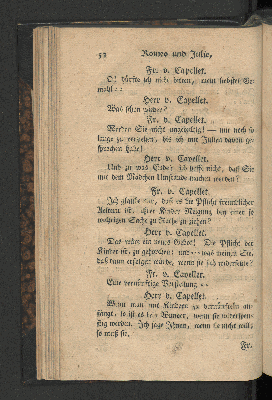 52 Romeo und Julie,
Fr. v. Capellet.
O! dürfte ich nicht bitten, mein liebster Ge-
mahl --
Herr v. Capellet.
Was schon wieder?
Fr. v. Capellet.
Werden Sie nicht ungehalten! — nur noch so
lange zu verziehen, bis ich mit Julien davon ge-
sprochen habe!
Herr v. Capellet.
Und zu was Ende? ich hoffe nicht, daß Sie
mit dem Mädchen Umstände machen werden?
Fr. v. Capellet.
Ich glaube nur, daß es die Pflicht freundlicher
Aeltern ist, ihrer Kinder Neigung bey einer so
wichtigen Sache zu Rathe zu ziehen?
Herr v. Capellet.
Das wäre ein neues Gebot! Die Pflicht der
Kinder ist, zu gehorchen: und -- was meinen Sie,
daß dann erfolgen würde, wenn sie sich widersetzte?
Fr. v. Capellet.
Eine vernünftige Vorstellung --
Herr v. Capellet.
Wenn man mit Kindern zu vernünfteln an-
fängt, so ist es kein Wunder, wenn sie widerspen-
stig werden. Ich sage Ihnen, wenn sie nicht will,
so muß sie.
Fr.